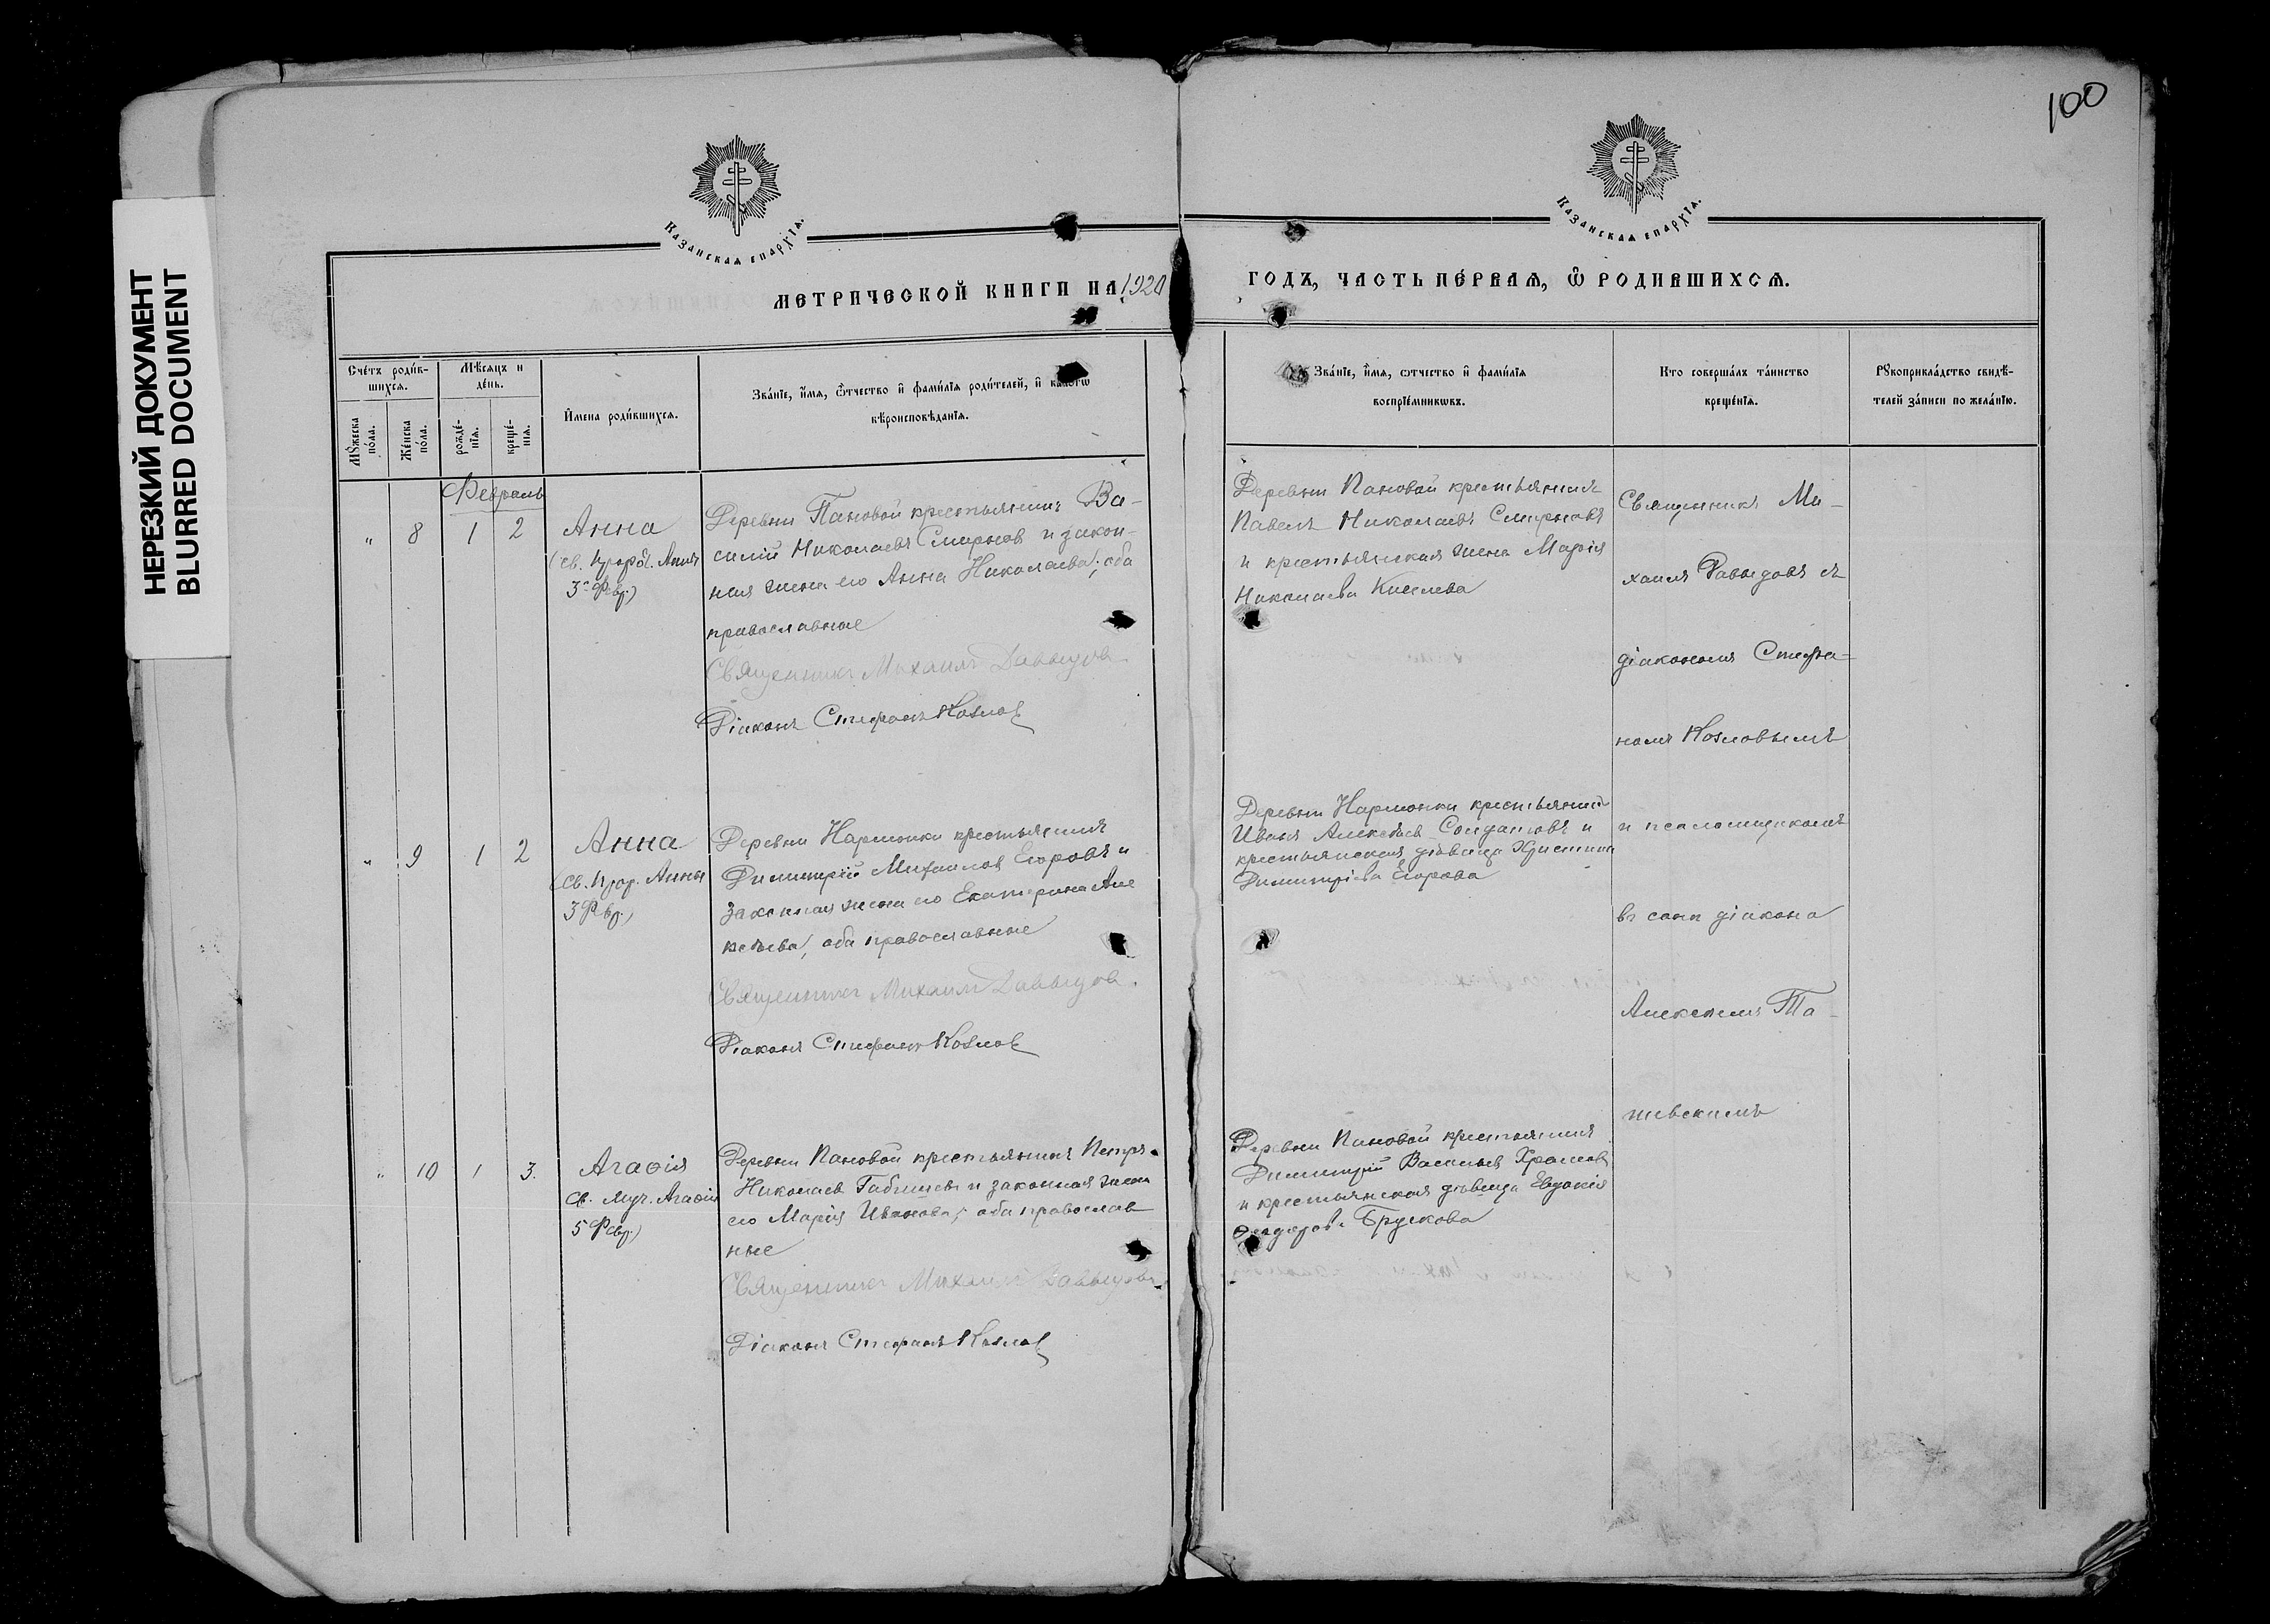 100
НЕРЕЗКИЙ ДОКУМЕНТ
BLURRED DOCUMENT
Казанская епархїа.
Казанская епархїа.
МЕТРИЧЕСКОЙ КНИГИ НА 1920
ГОДЪ, ЧАСТЬ ПЕ́РВАЯ, Ѡ РОДИВШИХСЯ.
Сче́тъ роди́в-
шихся.
Мѣ́сяцъ и
де́нь.
Мꙋ́жеска
по́ла.
Же́нска
по́ла.
рожде́-
нїя.
креще́-
нїя.
И́мена роди́вшихся.
Зва́нїе, и́мя, ѻ҆́тчество и҆ фами́лїя роди́телей, и҆ како́гѡ
вѣроисповѣ́данїя.
Зва́нїе, и҆́мя, ѻтчество и҆ фами́лїя
воспрїе́мникѡвъ.
Кто соверша́лъ та́инство
креще́нїя.
Рꙋкоприкла́дство свидѣ́-
телей за́писи по жела́нїю.
Февраль
" 8 1 2
Анна
(св. прор. Анны
3го Февр.)
Деревни Пановой крестьянинъ Ва-
силій Николаевъ Смирнов и закон-
ная жена его Анна Николаева; оба
православные
Священникъ Михаилъ Давыдов.
Діаконъ Стефанъ Козлов
Деревни Пановой крестьянинъ
Павелъ Николаевъ Смирновъ
и крестьянская жена Марія
Николаева Киселева
Священникъ Ми-
хаилъ Давыдовъ съ
діакономъ Стефа-
номъ Козловымъ
и псаломщикомъ
въ санѣ діакона
Алексѣемъ Та-
" 9 1 2
Анна
(св. прор. Анны
3 Февр.)
Деревни Нармонки крестьянинъ
Димитрій Михаилов Егоровъ и
законная жена его Екатерина Але
ксѣева, оба православные
Священникъ Михаилъ Давыдов.
Діаконъ Стефанъ Козлов
Деревни Нармонки крестьянинъ
Иванъ Алексѣев Солдатовъ и
крестьянская дѣвица Христина
Димитріева Егорова
" 10 1 3.
Агаѳія
св. муч. Агаѳіи
5 Февр.)
Деревни Пановой крестьянинъ Петръ
Николаев Габишевъ и законная жена
его Марія Иванова; оба православ
ные
Священникъ Михаилъ Давыдовъ.
Діаконъ Стефанъ Козлов
Деревни Пановой крестьянинъ
Димитрій Васильев Храмов
и крестьянская дѣвица Евдокія
Ѳеодорова Брускова